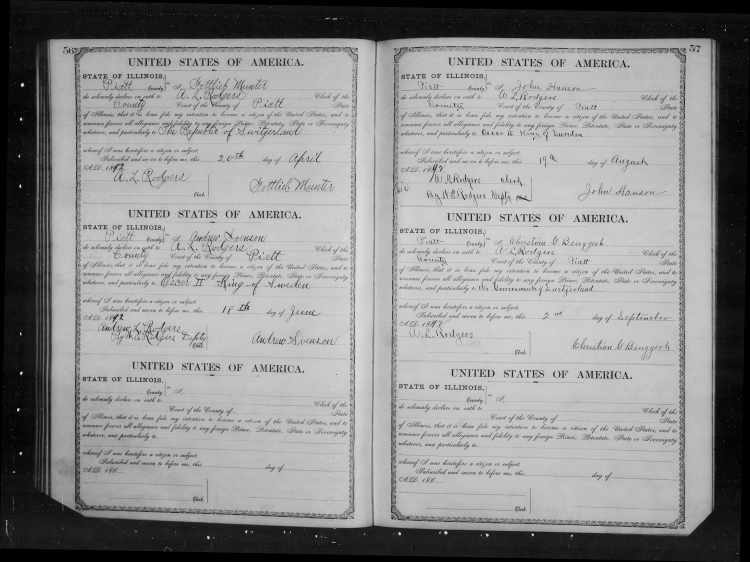 56
UNITED STATES OF AMERICA.
STATE OF ILLINOIS,
Piatt County. I, Gottlieb Munter
do solemnly declare on oath to A. L. Rodgers Clerk of the
County Court of the County of Piatt State
of Illinois, that it is bona fide my intention to become a citizen of the United States, and to
renounce forever all allegiance and fidelity to any foreign Prince, Potentate, State or Sovereignty
whatever, and particularly to The Republic of Switzerland
whereof I was heretofore a citizen or subject.
Subscribed and sworn to before me, this 20th day of April
A.D. 1892
A. L. Rodgers
Clerk
Gottlieb Munter
UNITED STATES OF AMERICA.
STATE OF ILLINOIS,
Piatt County. I, Andrew Svenson
do solemnly declare on oath to A. L. Rodgers Clerk of the
County Court of the County of Piatt State
of Illinois, that it is bona fide my intention to become a citizen of the United States, and to
renounce forever all allegiance and fidelity to any foreign Prince, Potentate, State or Sovereignty
whatever, and particularly to Oscar II King of Sweden
whereof I was heretofore a citizen or subject.
Subscribed and sworn to before me, this 18th day of June
A.D. 1892
Andrew L. Rodgers
Rodgers Deputy
Clerk
Andrew Svenson
UNITED STATES OF AMERICA.
STATE OF ILLINOIS,
County. I,
do solemnly declare on oath to Clerk of the
Court of the County of State
of Illinois, that it is bona fide my intention to become a citizen of the United States, and to
renounce forever all allegiance and fidelity to any foreign Prince, Potentate, State or Sovereignty
whatever, and particularly to
whereof I was heretofore a citizen or subject.
Subscribed and sworn to before me, this day of
A.D. 18
Clerk
57
UNITED STATES OF AMERICA.
STATE OF ILLINOIS,
Piatt County. I, John Hanson
do solemnly declare on oath to A. L. Rodgers Clerk of the
County Court of the County of Piatt State
of Illinois, that it is bona fide my intention to become a citizen of the United States, and to
renounce forever all allegiance and fidelity to any foreign Prince, Potentate, State or Sovereignty
whatever, and particularly to Oscar II King of Sweden
whereof I was heretofore a citizen or subject.
Subscribed and sworn to before me, this 19th day of August
A.D. 1892
Rodgers Clerk
By Rodgers Depty
John Hanson
UNITED STATES OF AMERICA.
STATE OF ILLINOIS,
Piatt County. I, Christian C Benggoch
do solemnly declare on oath to A L Rodgers Clerk of the
County Court of the County of Piatt State
of Illinois, that it is bona fide my intention to become a citizen of the United States, and to
renounce forever all allegiance and fidelity to any foreign Prince, Potentate, State or Sovereignty
whatever, and particularly to the Government of Switzerland
whereof I was heretofore a citizen or subject.
Subscribed and sworn to before me, this 2nd day of September
A.D. 1892
A. L. Rodgers
Clerk
Christian C Benggoch
UNITED STATES OF AMERICA.
STATE OF ILLINOIS,
County. I,
do solemnly declare on oath to Clerk of the
Court of the County of State
of Illinois, that it is bona fide my intention to become a citizen of the United States, and to
renounce forever all allegiance and fidelity to any foreign Prince, Potentate, State or Sovereignty
whatever, and particularly to
whereof I was heretofore a citizen or subject.
Subscribed and sworn to before me, this day of
A.D. 18
Clerk